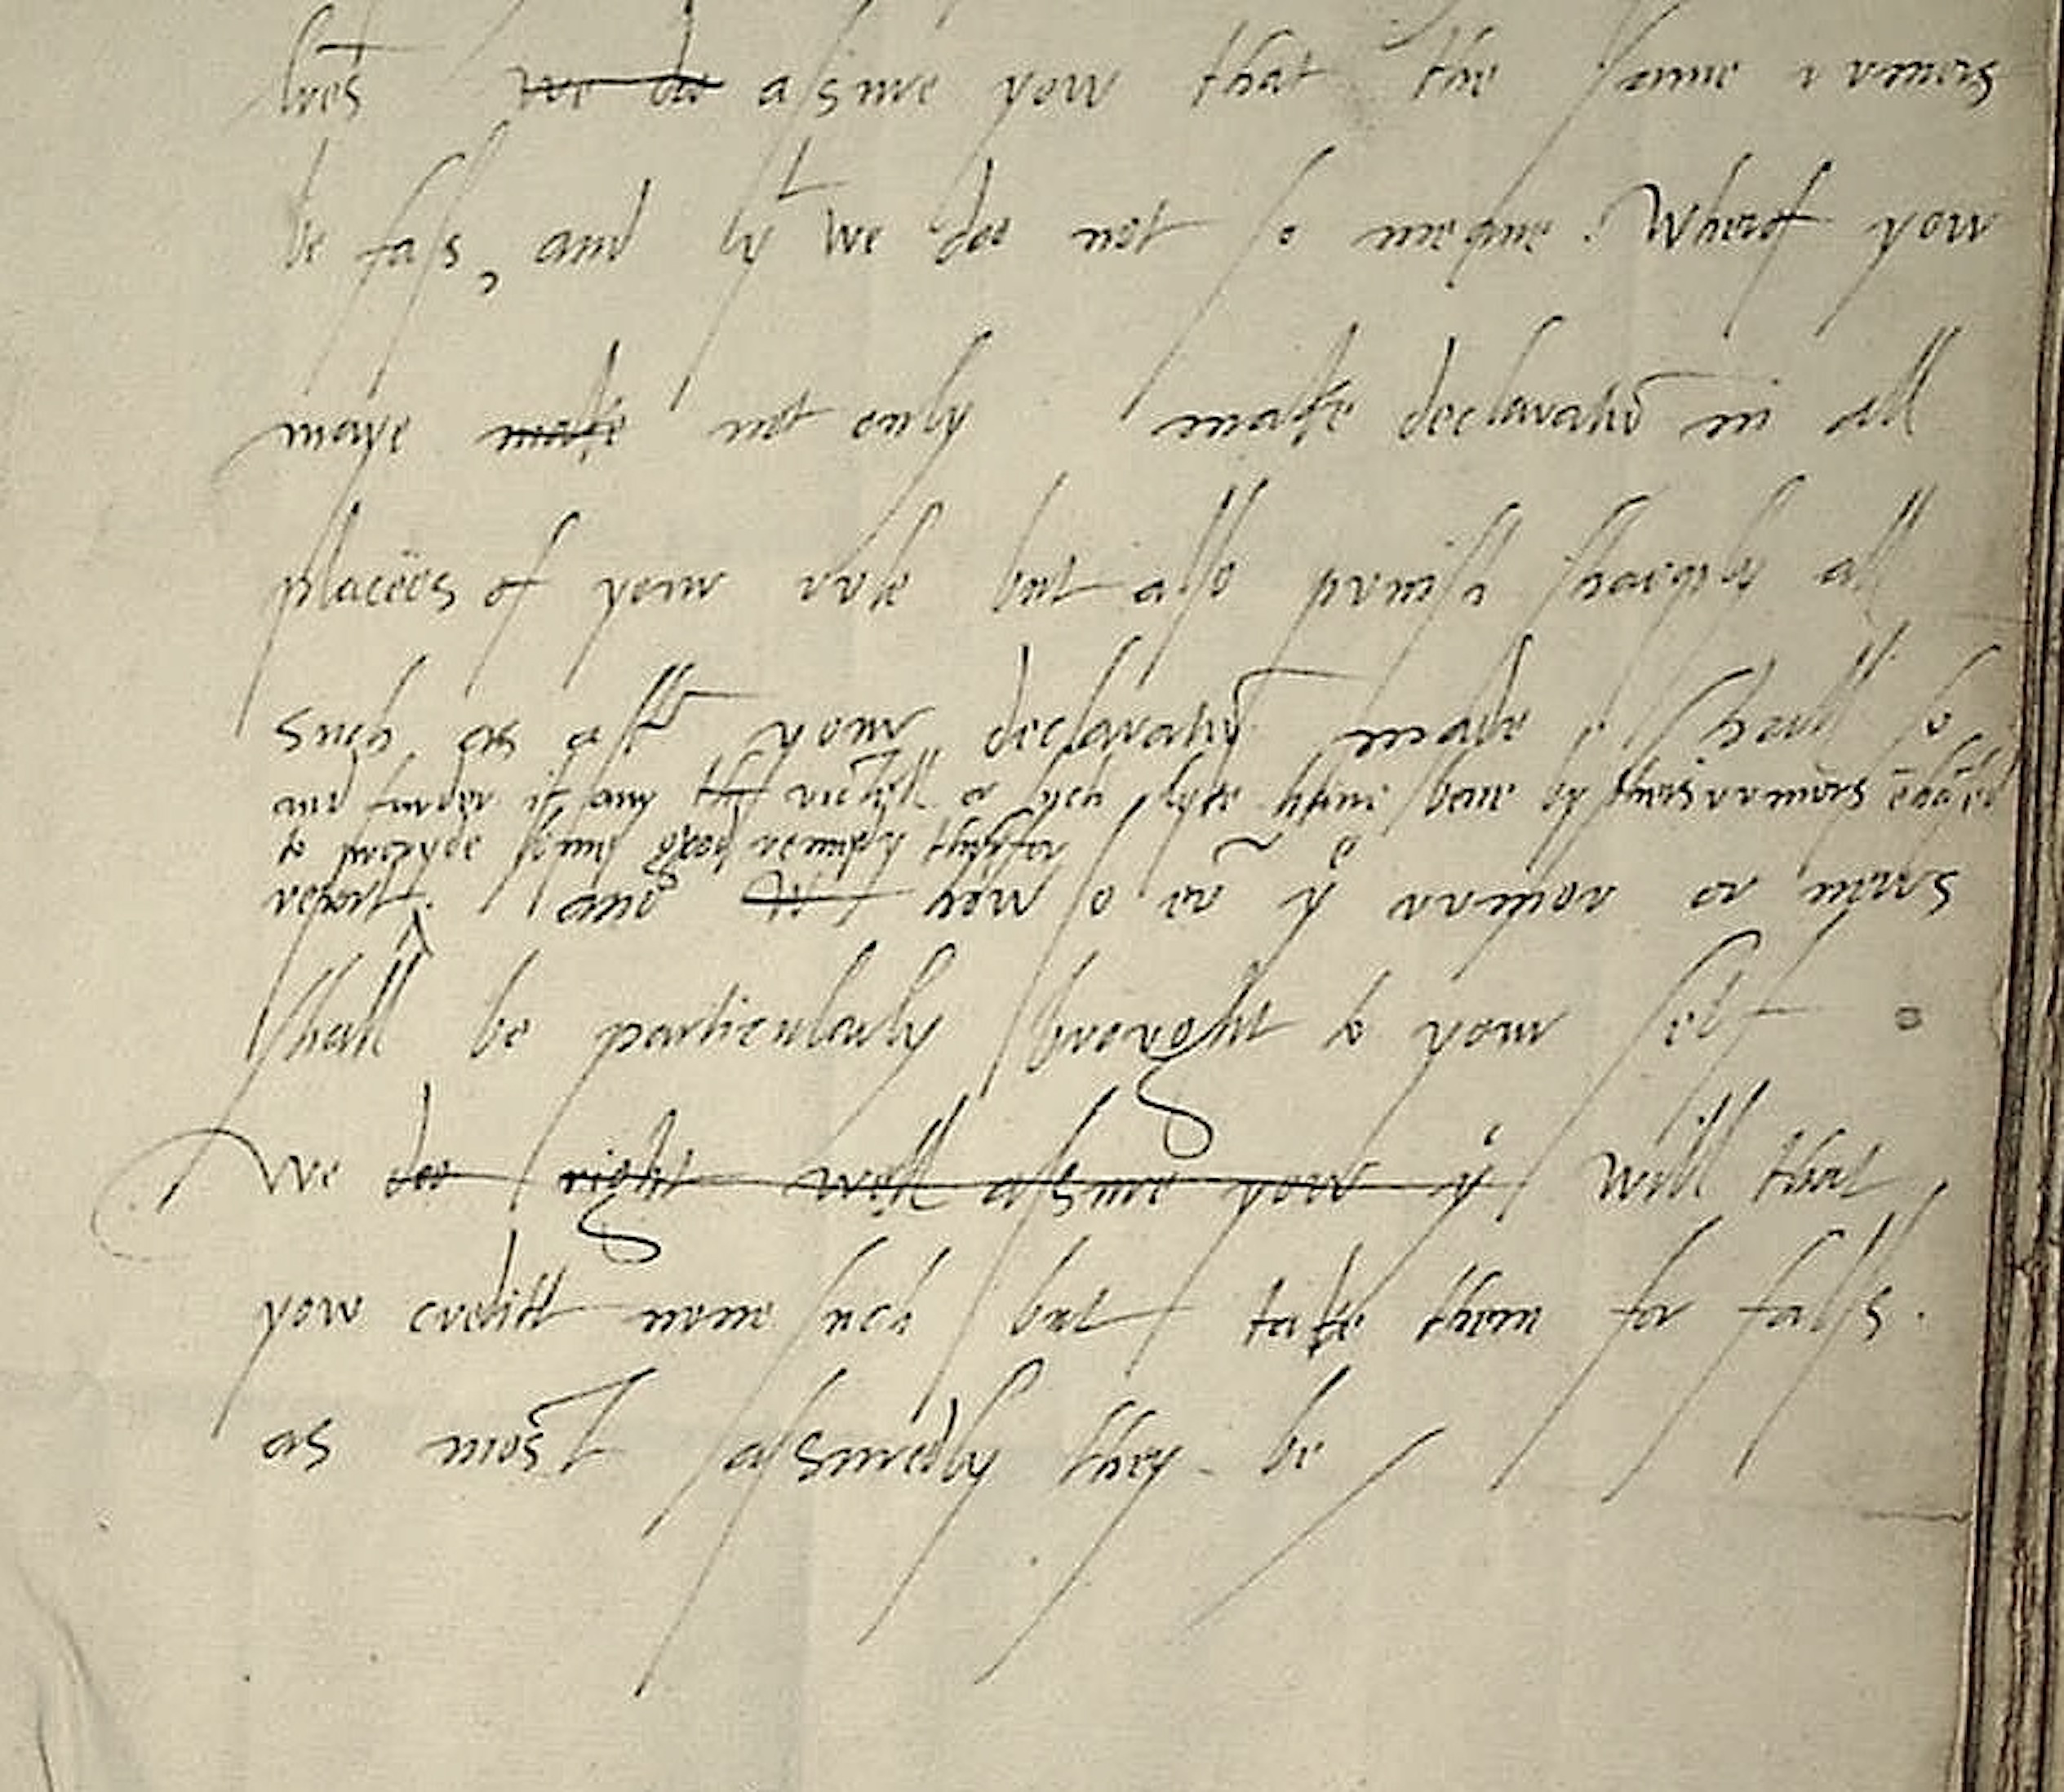 lrēs we do assure yow that the same rumors
be fals, and yt we doo not so meane. Wherof yow
maye make not only make declaratiō in all
placees of your rule but also punish sharply all
such as aftr your declaratiō made shall so
and furder if any victell or such lyke thing have bene by theis rumors
to provyde some good remedy therfor
report. and how so evr ye rumor or news
shall be particularly brought to your self
We doo right well assure yow yt will that
yow creditt none such but take them for fals.
as most assuredly they be